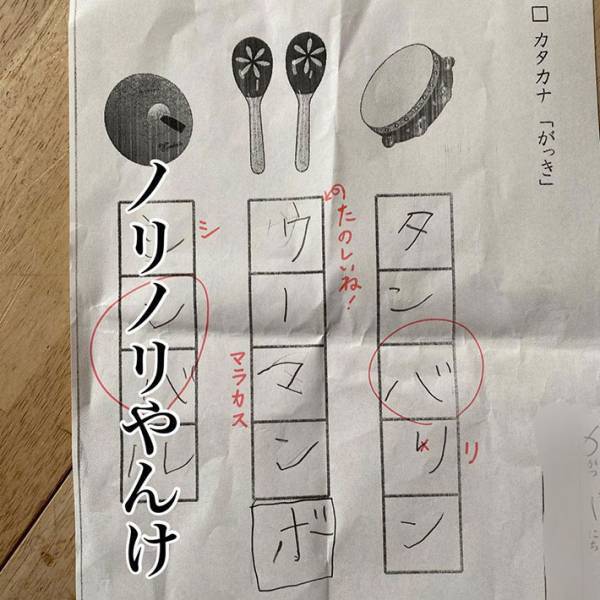 □ カタカナ「がっき」
がつ にち
タンバリン
リ
のたのしいね!
ウーマンボ
マラカス
シ
ンバル
ノリノリやんけ